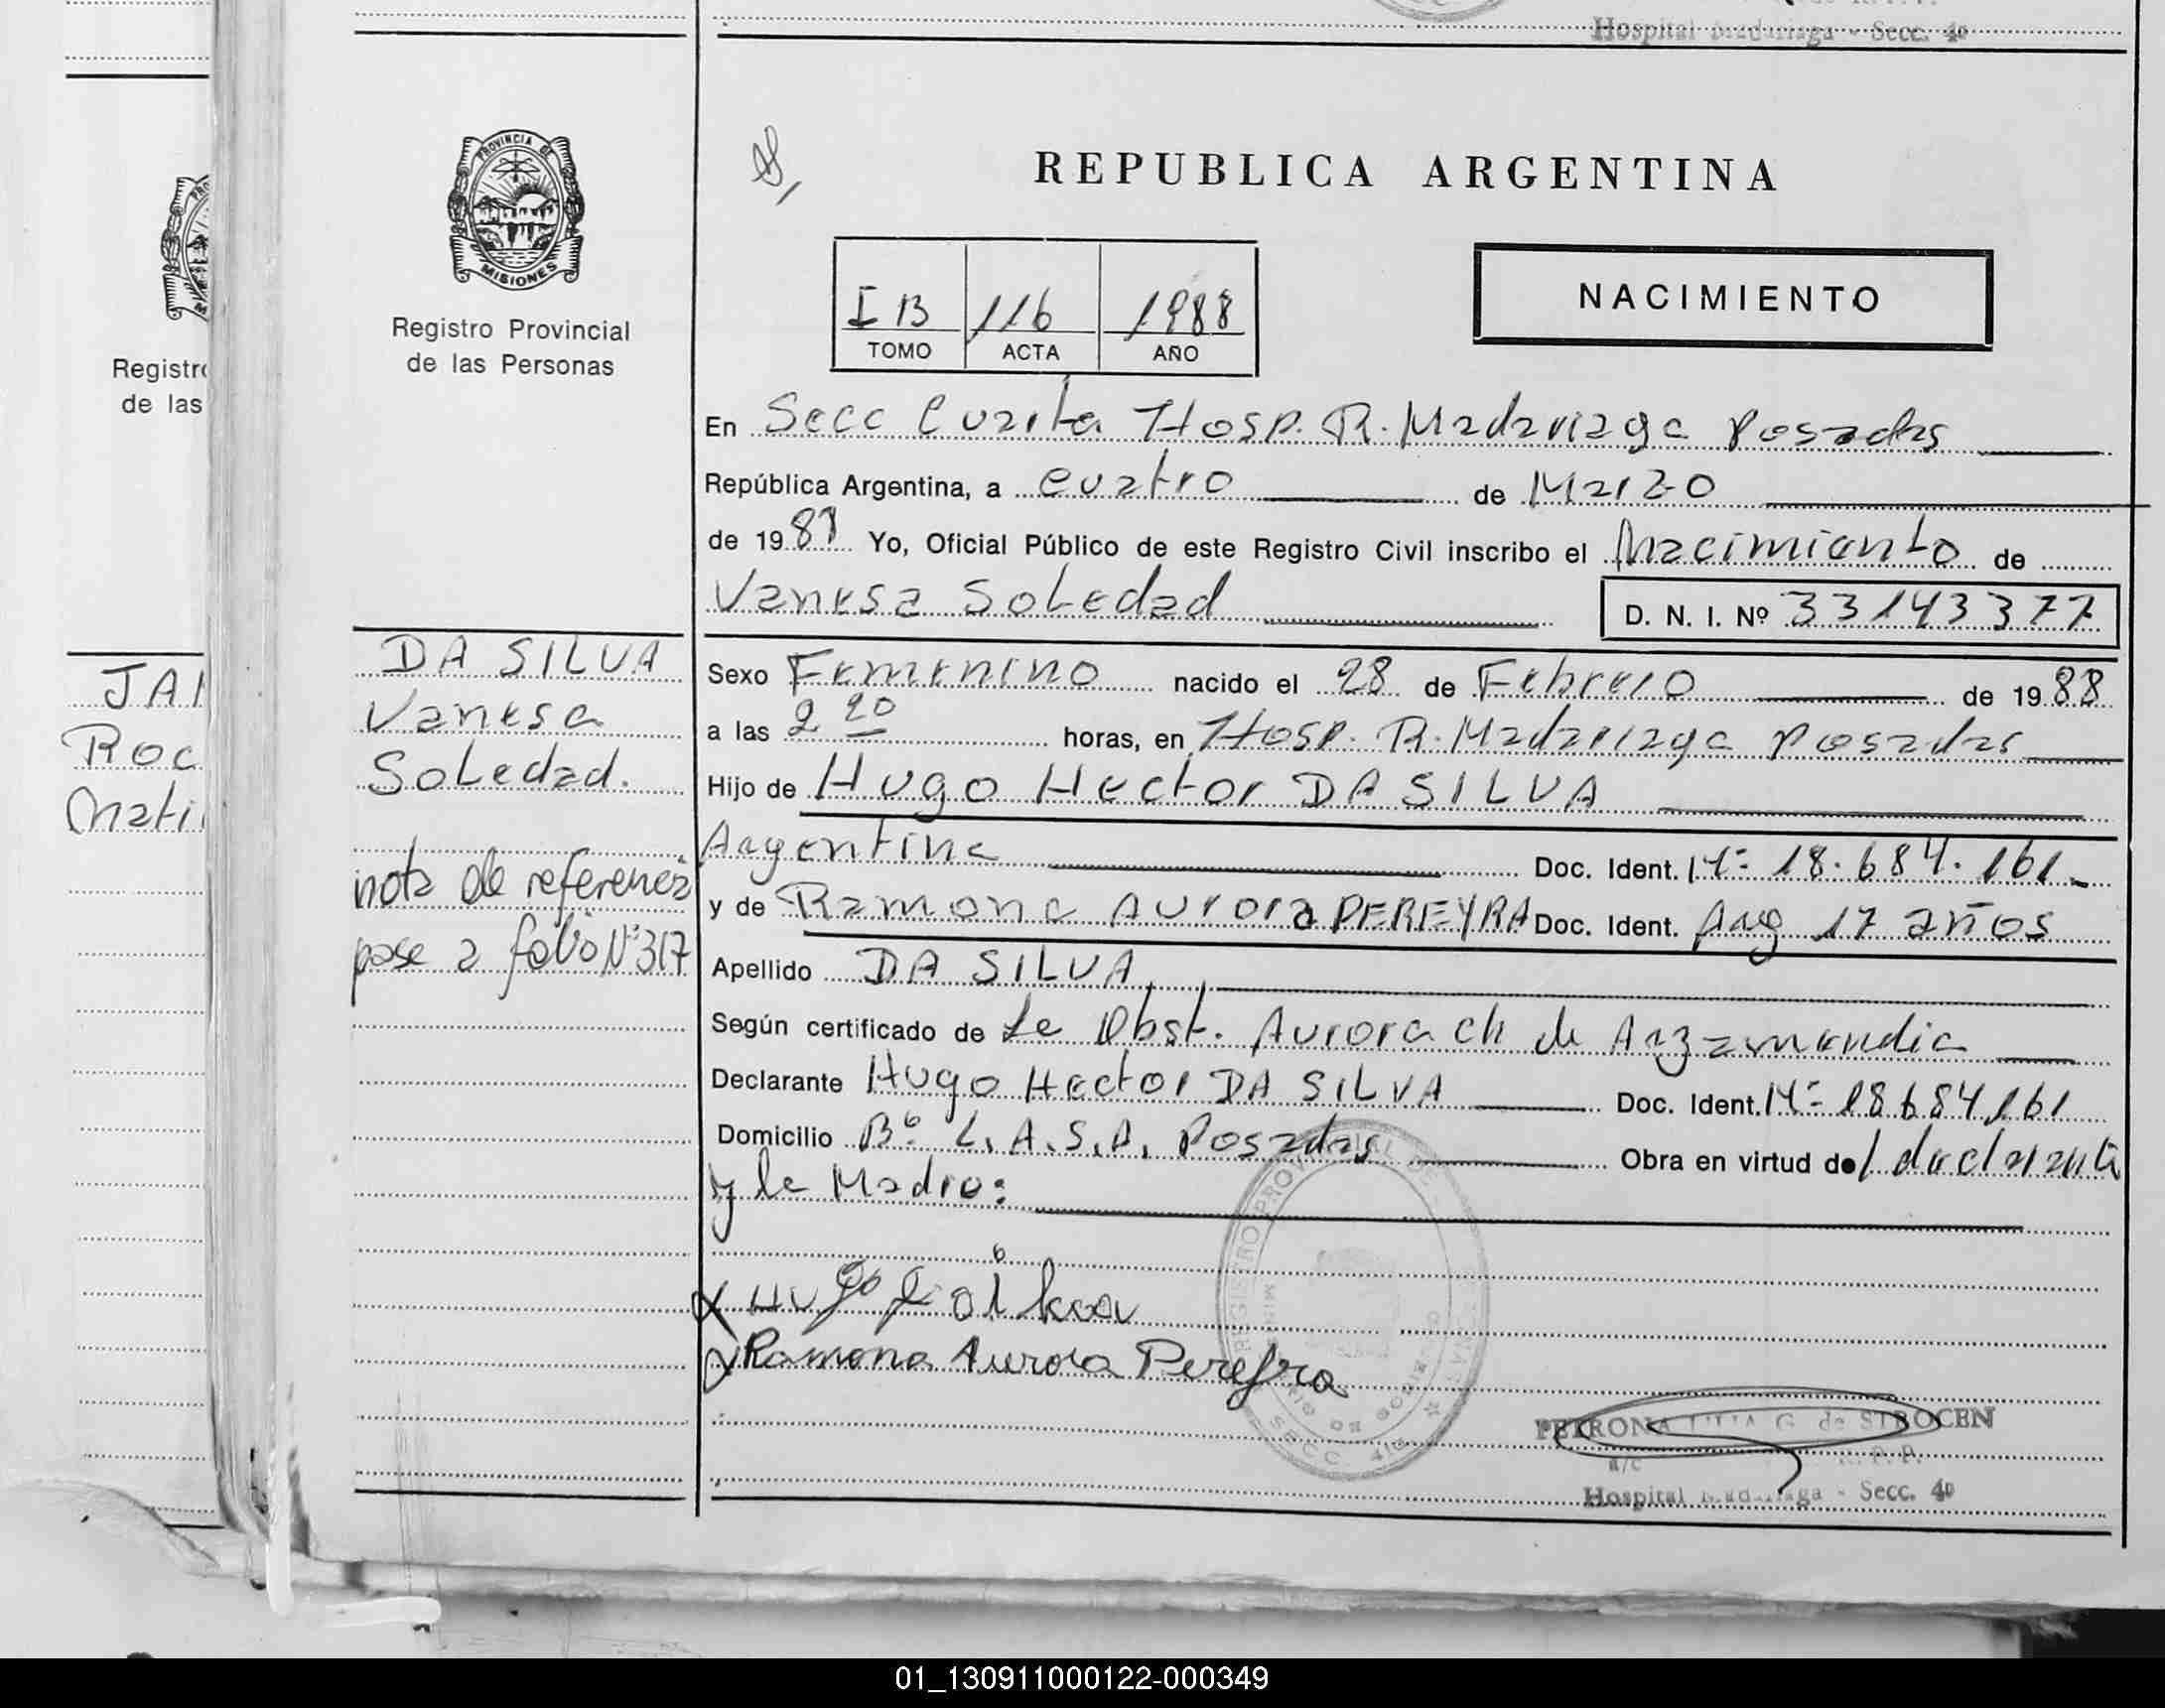 Hospital Madariaga - Secc. 4º
PROVINCIA DE
MISIONES
Registro Provincial
de las Personas
Registro
de las
REPUBLICA ARGENTINA
I B 116 1988
TOMO ACTA AÑO
NACIMIENTO
En Secc Cuarta Hosp. R. Madariaga Posadas
República Argentina, a cuatro de Marzo
de 198 Yo, Oficial Público de este Registro Civil inscribo el Nacimiento de
Vanesa Soledad D. N. I. Nº 33143377
DA SILVA
Vanesa
Soledad.
nota de referencia
pase a folio Nº 317
JAR
Roc
Mati
Sexo Femenino nacido el 28 de Febrero de 1988
a las 2 20 horas, en Hosp. R. Madariaga Posadas
Hijo de Hugo Hector DA SILVA
Argentina Doc. Ident. Mº 18.684.161-
y de Ramona Aurora PEREYRA Doc. Ident. Arg 17 años
Apellido DA SILVA
Según certificado de la Obst. Aurora Ch de Arzamendia
Declarante Hugo Hector DA SILVA Doc. Ident. Mº 18684161
Domicilio Bº L.A.S.A. Posadas Obra en virtud del declarante
y la Madre:
Hugo
Ramona Aurora Pereyra
REGISTRO PROVINCIAL DE
SECC. 4ta
PETRONA G. de SIROCEN
a/c R.P.P.
Hospital Madariaga - Secc. 4º
01_130911000122-000349